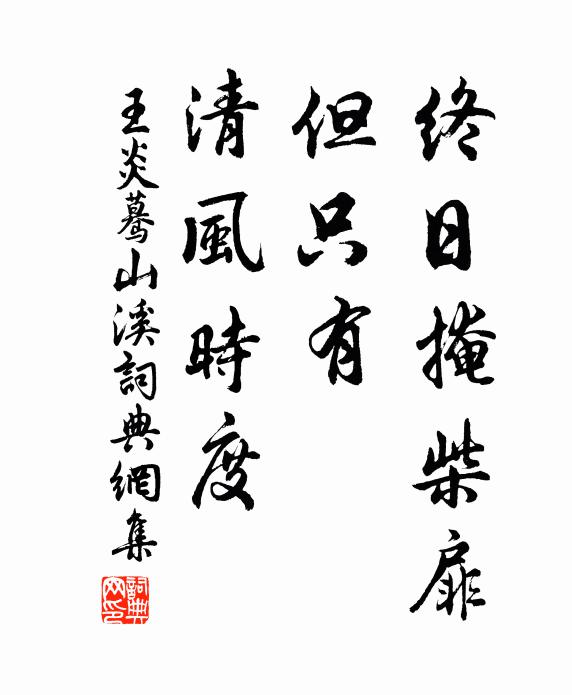 終日掩柴扉
但只有
清風時度
王炎驀山溪詞典網集
詞典網印